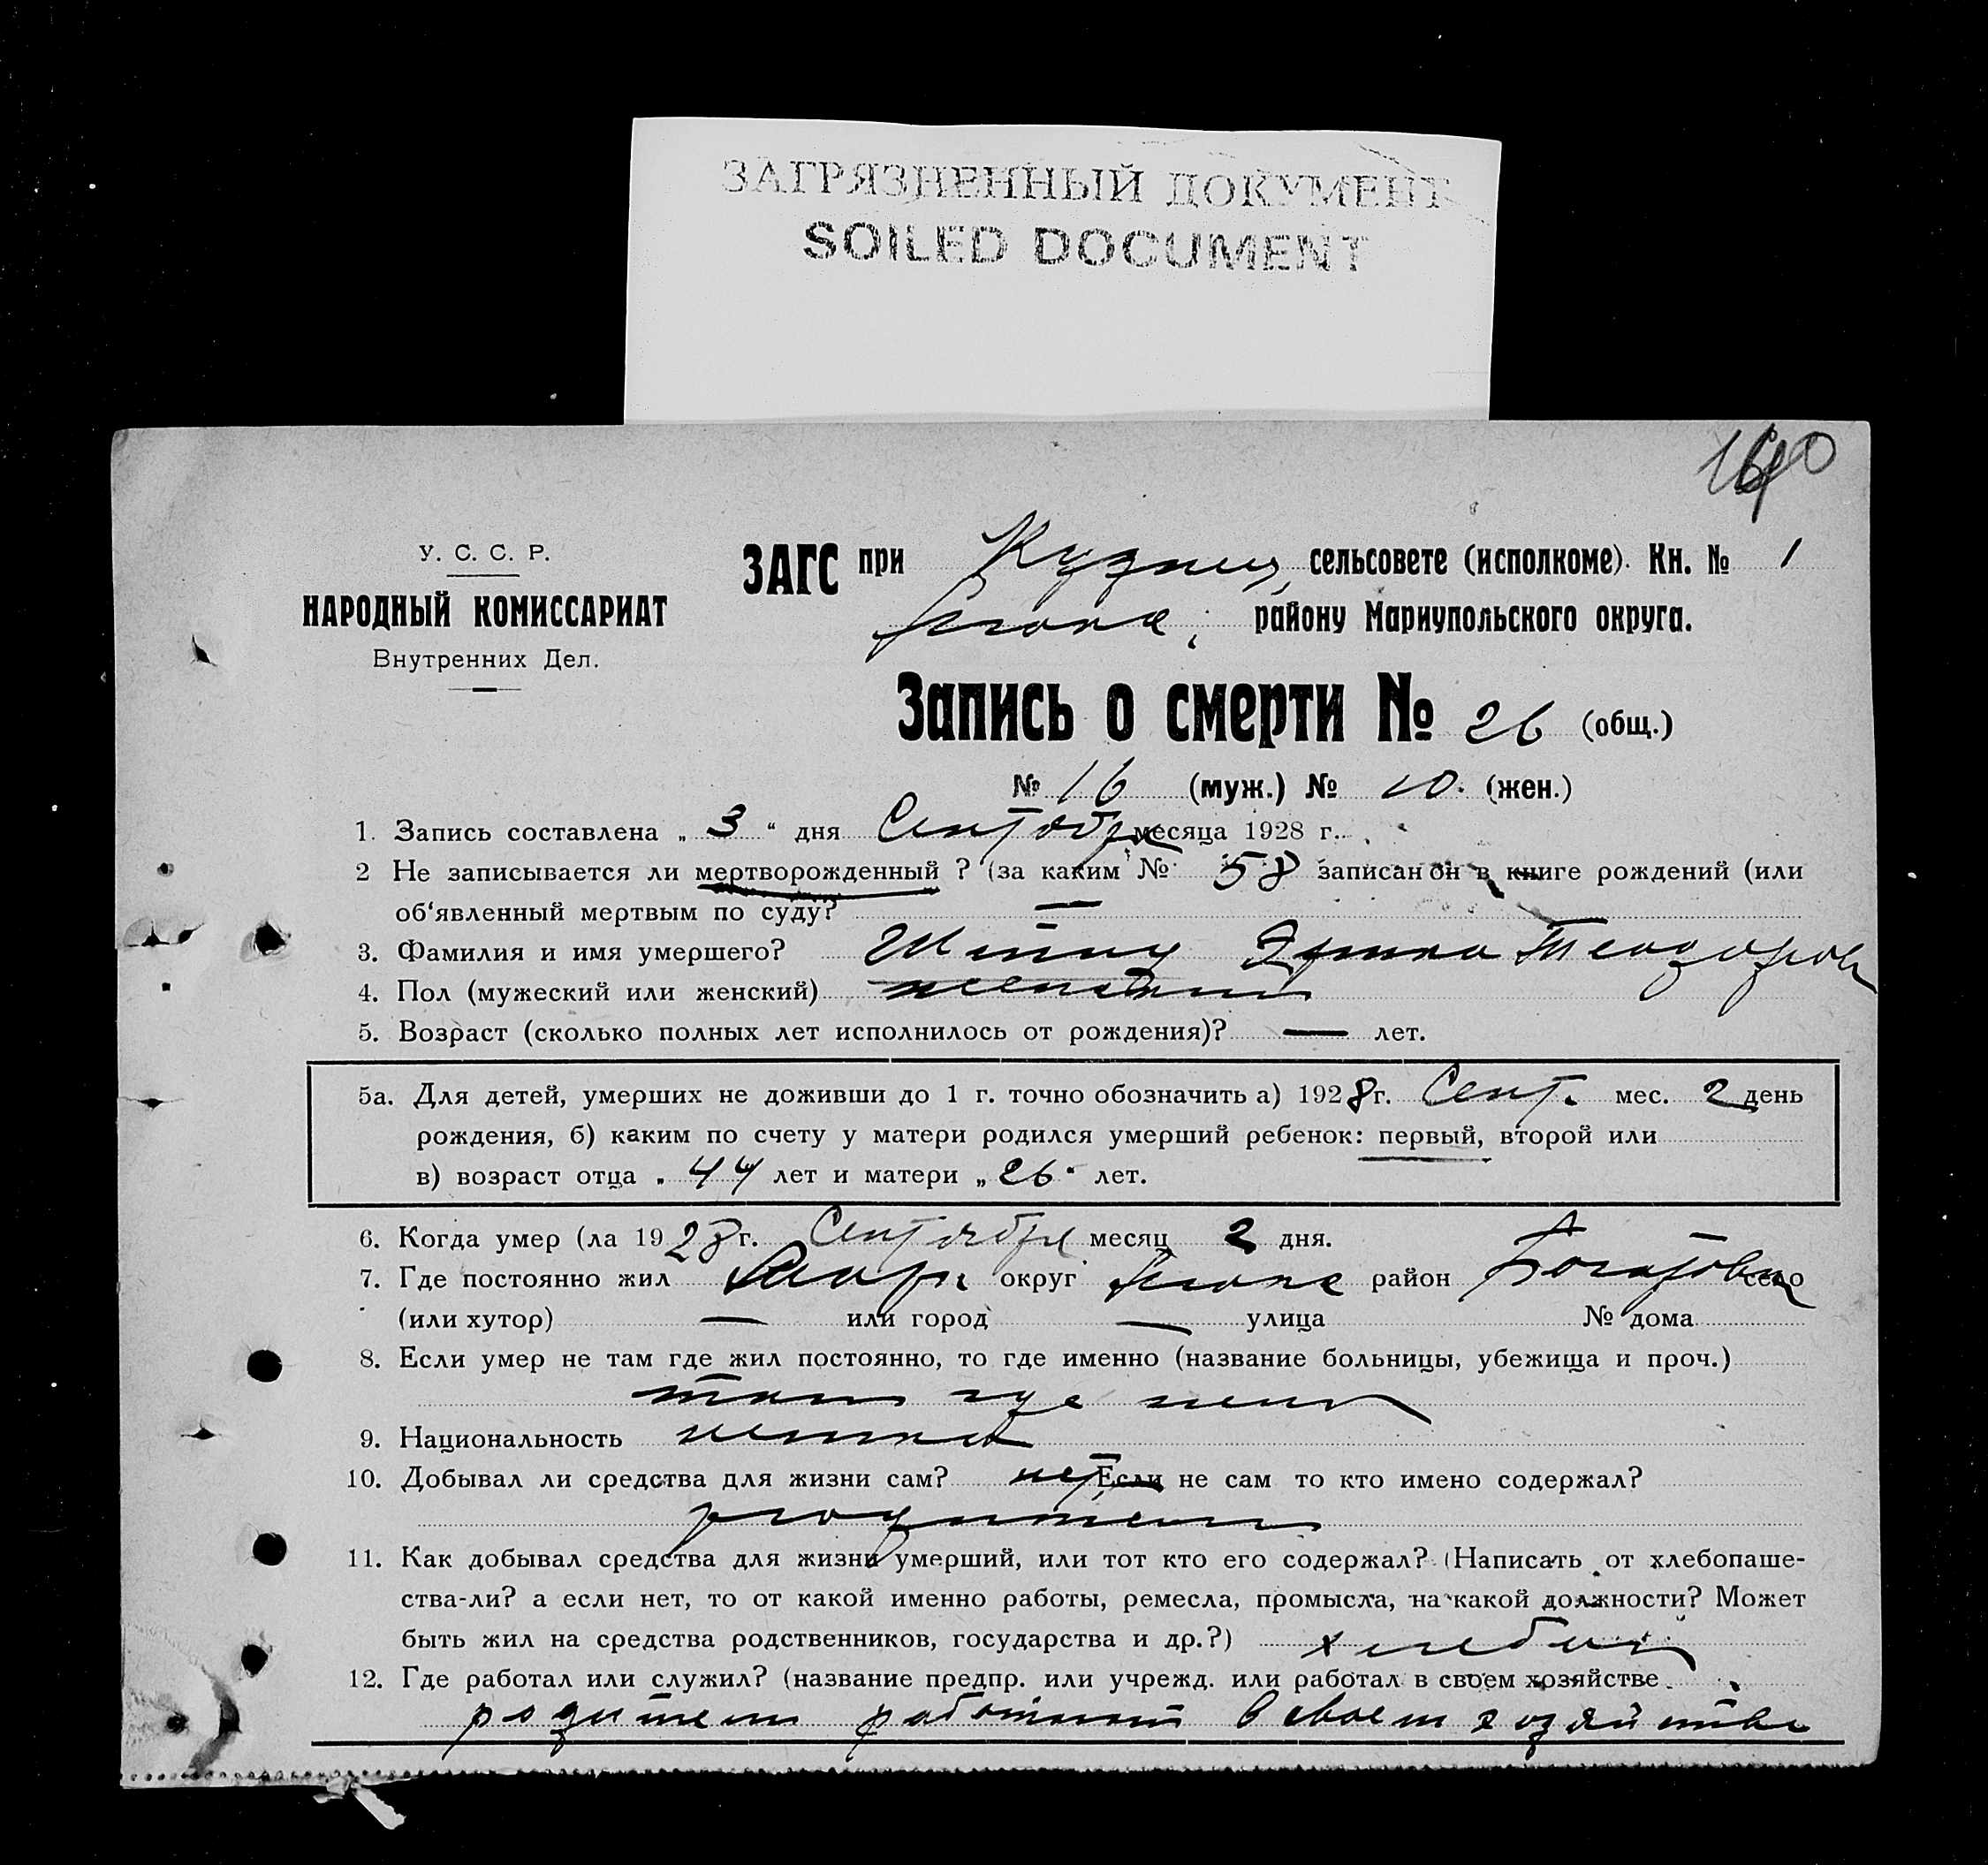 ЗАГРЯЗНЕННЫЙ ДОКУМЕНТ
SOILED DOCUMENT
У. С. С. Р.
НАРОДНЫЙ КОМИССАРИАТ
Внутренних Дел.
ЗАГС при сельсовете (исполкоме). Кн. № 1
району Мариупольского округа.
Запись о смерти № 26 (общ.)
№ 16 (муж.) № 10. (жен.)
1. Запись составлена „ 3 “ дня Сентября месяца 1928 г.
2 Не записывается ли мертворожденный ? (за каким № 58 записан он в книге рождений (или
об‘явленный мертвым по суду? —
3. Фамилия и имя умершего? Эрика Теодоров
4. Пол (мужеский или женский) женский
5. Возраст (сколько полных лет исполнилось от рождения)? — лет.
5а. Для детей, умерших не доживши до 1 г. точно обозначить а) 1928 г. Сент. мес. 2 день
рождения, б) каким по счету у матери родился умерший ребенок: первый, второй или
в) возраст отца „ 44 лет и матери „ 26 “ лет.
6. Когда умер (ла 1928 г. Сентября месяц 2 дня.
7. Где постоянно жил округ район село
(или хутор) — или город — улица № дома
8. Если умер не там где жил постоянно, то где именно (название больницы, убежища и проч.)
там где жил
9. Национальность немка
10. Добывал ли средства для жизни сам? нет Если не сам то кто имено содержал?
родители
11. Как добывал средства для жизни умерший, или тот кто его содержал? (Написать от хлебопаше-
ства-ли? а если нет, то от какой именно работы, ремесла, промысла, на какой должности? Может
быть жил на средства родственников, государства и др.?)
12. Где работал или служил? (название предпр. или учрежд. или работал в своем хозяйстве
родители работают в своем хозяйстве